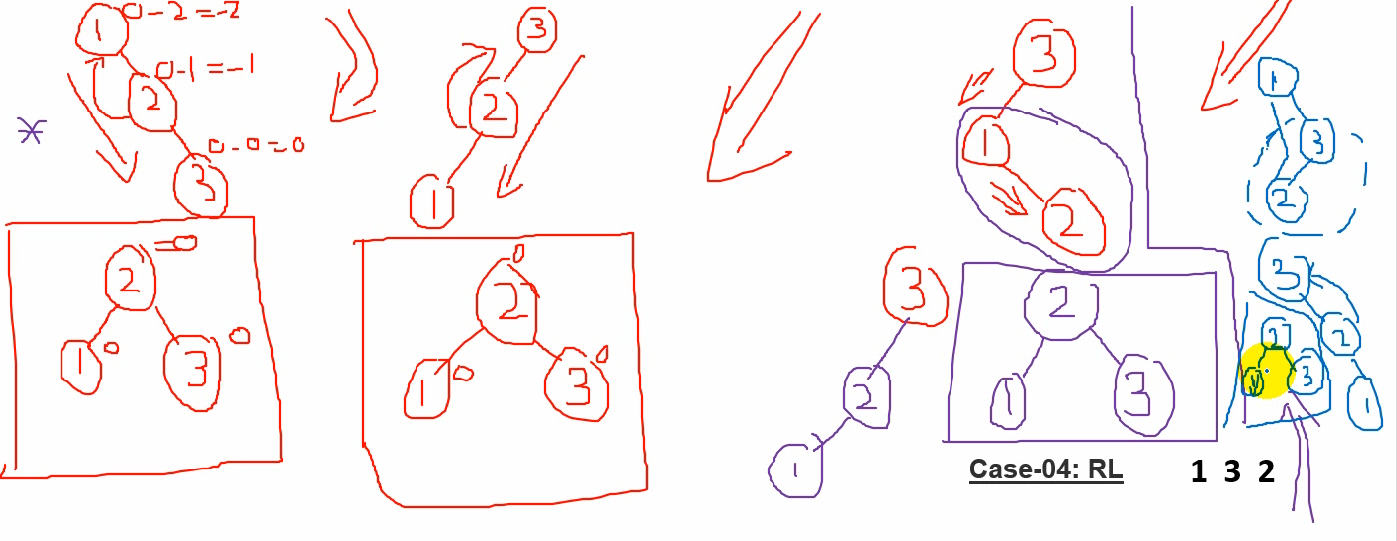 1 0-2=-2
2 0-1=-1
3 0-0=0
2 =0
1 0
3 0
3
2
1
2 0
1 0
3 0
3
1
2
3
2
1
2
1
3
1
3
2
3
2
1
2
1
3
Case-04: RL 1 3 2